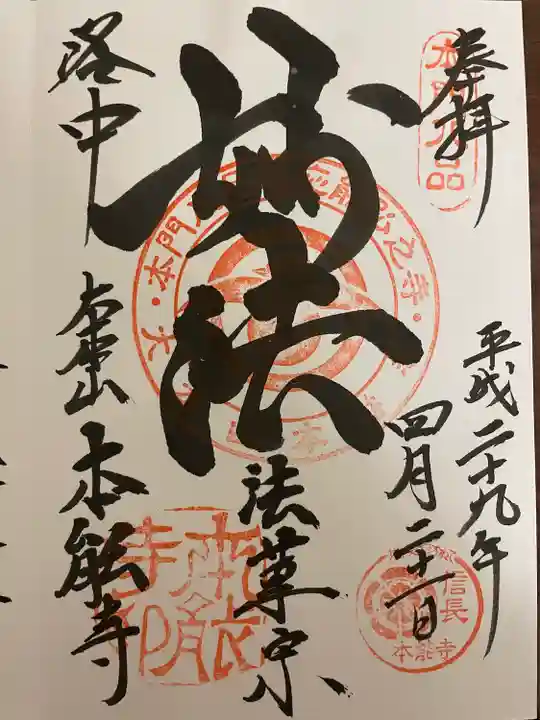 奉拝
平成二十九年
四月二十一日
妙法
法華宗
洛中
本能寺
本能寺印
信長
本能寺